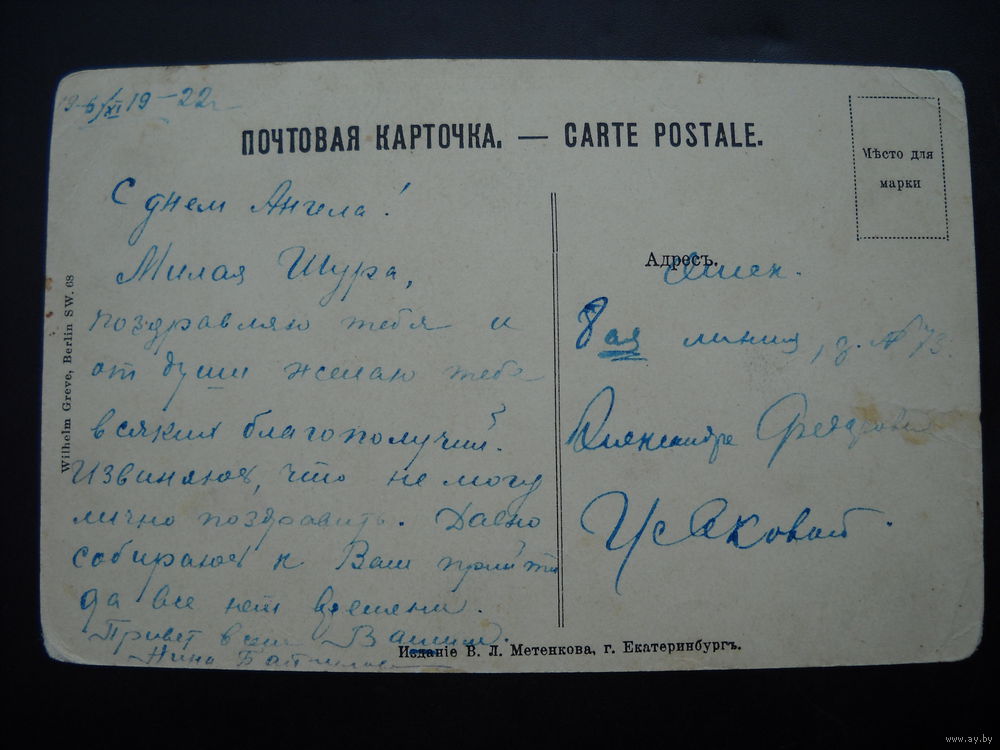 19-6/XI 19-22г
ПОЧТОВАЯ КАРТОЧКА. — CARTE POSTALE.
Мѣсто для
марки
С днем Ангела!
Милая Шура,
поздравляю тебя и
от души желаю тебе
всяких благополучий.
Извиняюсь, что не могу
лично поздравить. Давно
собираюсь к Вам прийти
да все нет времени.
Привет всем Вашим.
Нина
Wilhelm Greve, Berlin SW. 68
Адресъ.
Омск.
8ая линия, д. № 73.
Александре Федоровне
Усаковой.
Изданіе В. Л. Метенкова, г. Екатеринбургъ.
www.ay.by